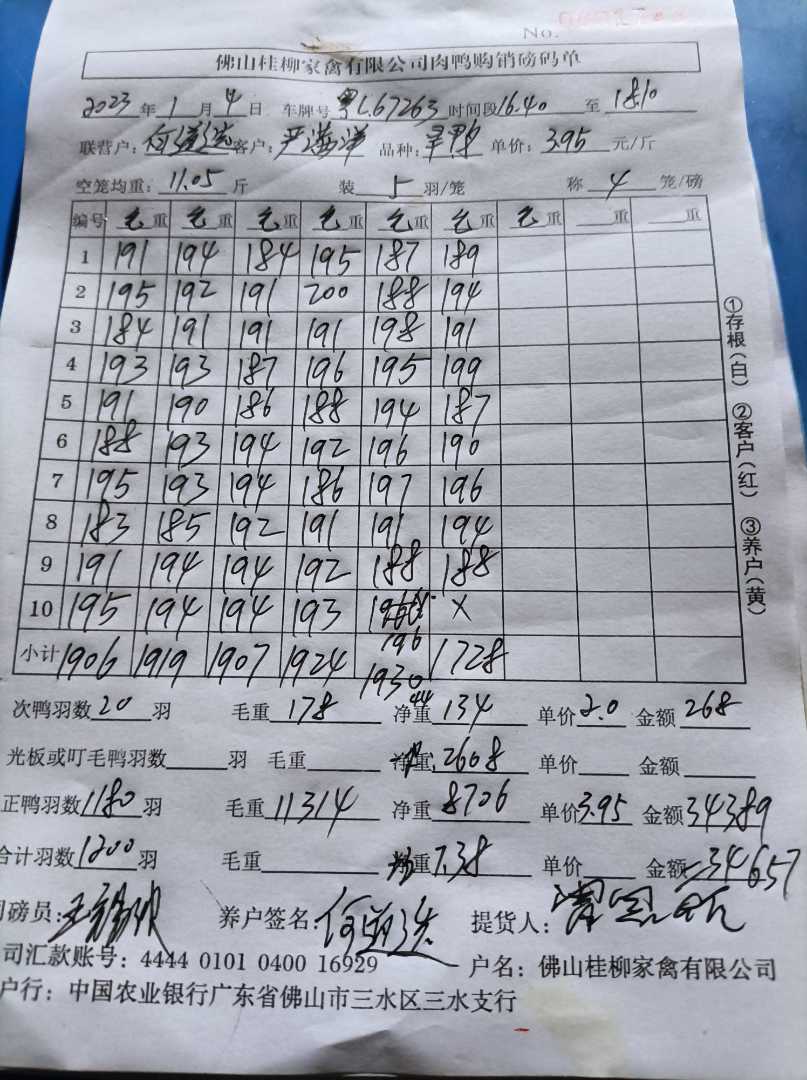 No.
佛山桂柳家禽有限公司肉鸭购销磅码单
2023年1月4日 车牌号 粤L67263 时间段 16.40 至 18.10
联营户: 客户: 严 品种: 单价: 3.95 元/斤
空笼均重: 11.05 斤 装 5 羽/笼 称 4 笼/磅
编号 毛重 毛重 毛重 毛重 毛重 毛重 毛重 重 重
1 191 194 184 195 187 189
2 195 192 191 200 188 194
3 184 191 191 191 198 191
4 193 193 187 196 195 199
5 191 190 186 188 194 187
6 188 193 194 192 196 190
7 195 193 194 186 197 196
8 183 185 192 191 191 194
9 191 194 194 192 188 188
10 195 194 194 193 196 X
小计 1906 1919 1907 1924 1930 1728
次鸭羽数 20 羽 毛重 178 44 净重 134 单价 2.0 金额 268
光板或叮毛鸭羽数 羽 毛重 净重 2608 单价 金额
正鸭羽数 1180 羽 毛重 11314 净重 8706 单价 3.95 金额 34389
合计羽数 1200 羽 毛重 重 7.38 单价 金额 34657
司磅员: 养户签名: 提货人:
司汇款账号: 4444 0101 0400 16929 户名: 佛山桂柳家禽有限公司
户行: 中国农业银行广东省佛山市三水区三水支行
①存根(白) ②客户(红) ③养户(黄)